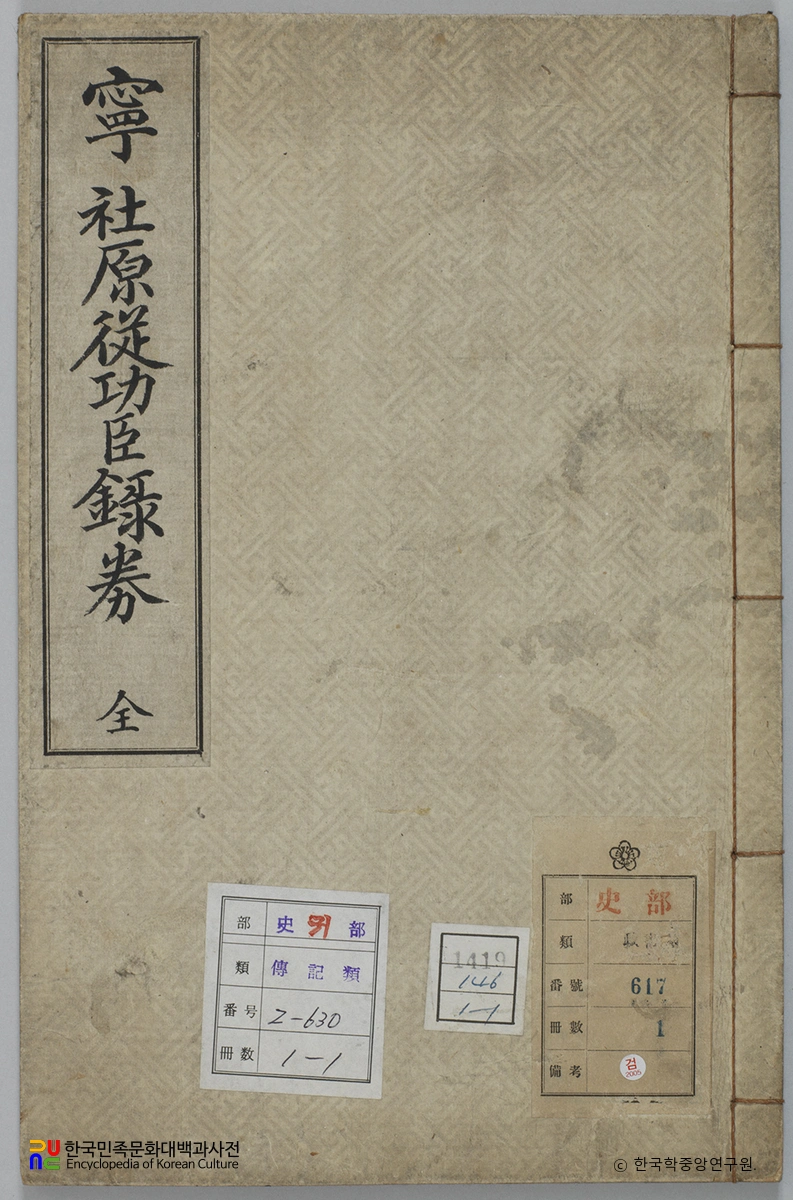 寧社原從功臣錄券
全
部 史 귀 部
類 傳記類
番号 Z-630
冊数 1-1
1419
146
1-1
部 史部
類
番號 617
冊數 1
備考 검
2005
한국민족문화대백과사전
Encyclopedia of Korean Culture
ⓒ 한국학중앙연구원.